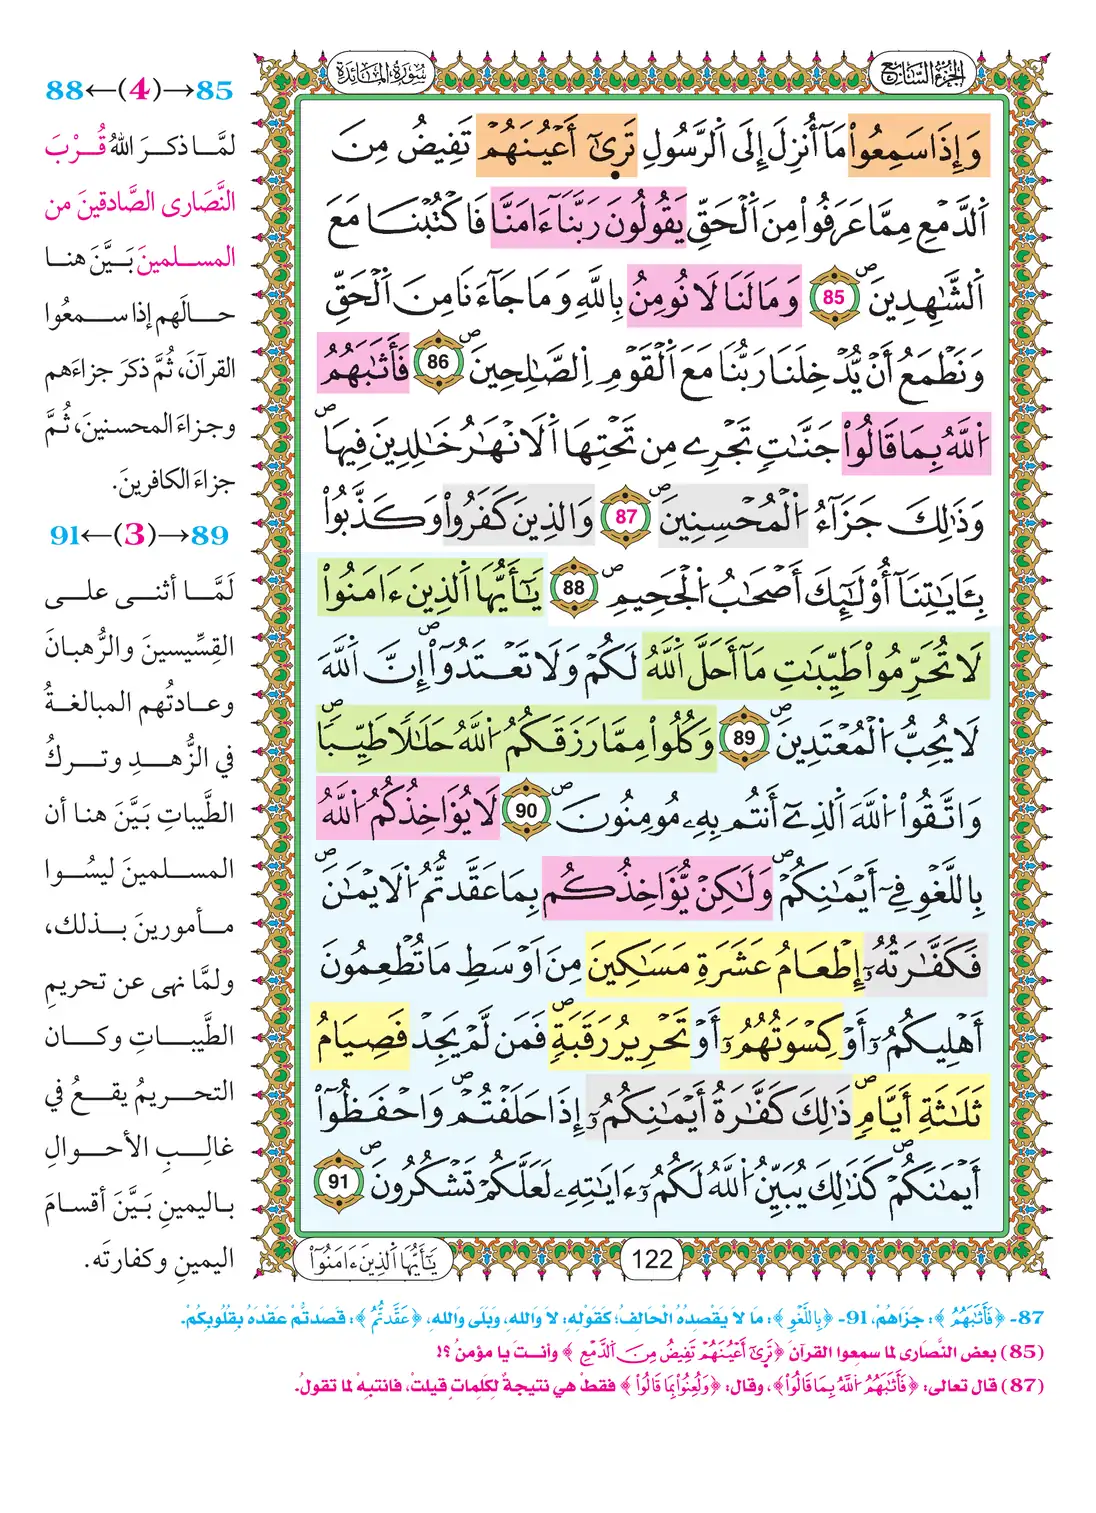 الجزء السابع
سورة المائدة
وَإِذَا سَمِعُواْ مَآ أُنزِلَ إِلَى اَلرَّسُولِ تَرَىٰٓ أَعْيُنَهُمْ تَفِيضُ مِنَ
اَلدَّمْعِ مِمَّا عَرَفُواْ مِنَ اَلْحَقِّ يَقُولُونَ رَبَّنَآ ءَامَنَّا فَاكْتُبْنَا مَعَ
اَلشَّٰهِدِينَۖ 85 وَمَا لَنَا لَا نُومِنُ بِاللَّهِ وَمَا جَآءَنَا مِنَ اَلْحَقِّ
وَنَطْمَعُ أَنْ يُّدْخِلَنَا رَبُّنَا مَعَ اَلْقَوْمِ اِلصَّٰلِحِينَۖ 86 فَأَثَٰبَهُمُ
اُللَّهُ بِمَا قَالُواْ جَنَّٰتٖ تَجْرِے مِن تَحْتِهَا اَلَانْهَٰرُ خَٰلِدِينَ فِيهَاۖ
وَذَٰلِكَ جَزَآءُ اُلْمُحْسِنِينَۖ 87 وَالذِينَ كَفَرُواْ وَكَذَّبُواْ
بِـَٔايَٰتِنَآ أُوْلَٰٓئِكَ أَصْحَٰبُ اُلْجَحِيمِۖ 88 يَٰٓأَيُّهَا اَلذِينَ ءَامَنُواْ
لَا تُحَرِّمُواْ طَيِّبَٰتِ مَآ أَحَلَّ اَللَّهُ لَكُمْ وَلَا تَعْتَدُوٓاْۖ إِنَّ اَللَّهَ
لَا يُحِبُّ اُلْمُعْتَدِينَۖ 89 وَكُلُواْ مِمَّا رَزَقَكُمُ اُللَّهُ حَلَٰلاٗ طَيِّباٗۖ
وَاتَّقُواْ اُللَّهَ اَلذِےٓ أَنتُم بِهِۦ مُومِنُونَۖ 90 لَا يُؤَاخِذُكُمُ اُللَّهُ
بِاللَّغْوِ فِےٓ أَيْمَٰنِكُمْۖ وَلَٰكِنْ يُّؤَاخِذُكُم بِمَا عَقَّدتُّمُ اُلَايْمَٰنَۖ
فَكَفَّٰرَتُهُۥٓ إِطْعَامُ عَشَرَةِ مَسَٰكِينَ مِنَ اَوْسَطِ مَا تُطْعِمُونَ
أَهْلِيكُمُۥٓ أَوْ كِسْوَتُهُمُۥٓ أَوْ تَحْرِيرُ رَقَبَةٖۖ فَمَن لَّمْ يَجِدْ فَصِيَامُ
ثَلَٰثَةِ أَيَّامٖۖ ذَٰلِكَ كَفَّٰرَةُ أَيْمَٰنِكُمُۥٓ إِذَا حَلَفْتُمْۖ وَاحْفَظُوٓاْ
أَيْمَٰنَكُمْۖ كَذَٰلِكَ يُبَيِّنُ اُللَّهُ لَكُمُۥٓ ءَايَٰتِهِۦ لَعَلَّكُمْ تَشْكُرُونَۖ 91
122
يَٰٓأَيُّهَا اَلذِينَ ءَامَنُوٓاْ
85→(4)←88
لمَّا ذكرَ اللهُ قُرْبَ
النَّصَارى الصَّادقينَ من
المسلمينَ بَيَّنَ هنا
حالَهم إذا سمعُوا
القرآنَ، ثُمَّ ذكرَ جزاءَهم
وجزاءَ المحسنينَ، ثُمَّ
جزاءَ الكافرينَ.
89→(3)←91
لَمَّا أثنى على
القِسِّيسينَ والرُّهبانَ
وعادتُهم المبالغةُ
في الزُّهدِ وتركُ
الطَّيباتِ بَيَّنَ هنا أن
المسلمينَ ليسُوا
مأمورينَ بذلك،
ولمَّا نهى عن تحريمِ
الطَّيباتِ وكان
التحريمُ يقعُ في
غالِبِ الأحوالِ
باليمينِ بَيَّنَ أقسامَ
اليمينِ وكفارتَه.
87- ﴿فَأَثَٰبَهُمُ﴾: جَزَاهُمْ، 91- ﴿بِاللَّغْوِ﴾: مَا لاَ يَقْصِدُهُ الْحَالِفُ؛ كَقَوْلِهِ: لاَ وَاللهِ، وَبَلَى وَاللهِ، ﴿عَقَّدتُّمُ﴾: قَصَدتُّمْ عَقْدَهُ بِقُلُوبِكُمْ.
(85) بعض النَّصَارى لما سمِعوا القرآنَ ﴿تَرَىٰٓ أَعْيُنَهُمْ تَفِيضُ مِنَ اَلدَّمْعِ﴾ وأنتَ يا مؤمنُ ؟!
(87) قال تعالى: ﴿فَأَثَٰبَهُمُ اُللَّهُ بِمَا قَالُواْ﴾، وقال: ﴿وَلُعِنُواْ بِمَا قَالُواْ﴾ فقطْ هي نتيجةٌ لِكَلِماتٍ قيلتْ، فانتبِهْ لما تقولُ.